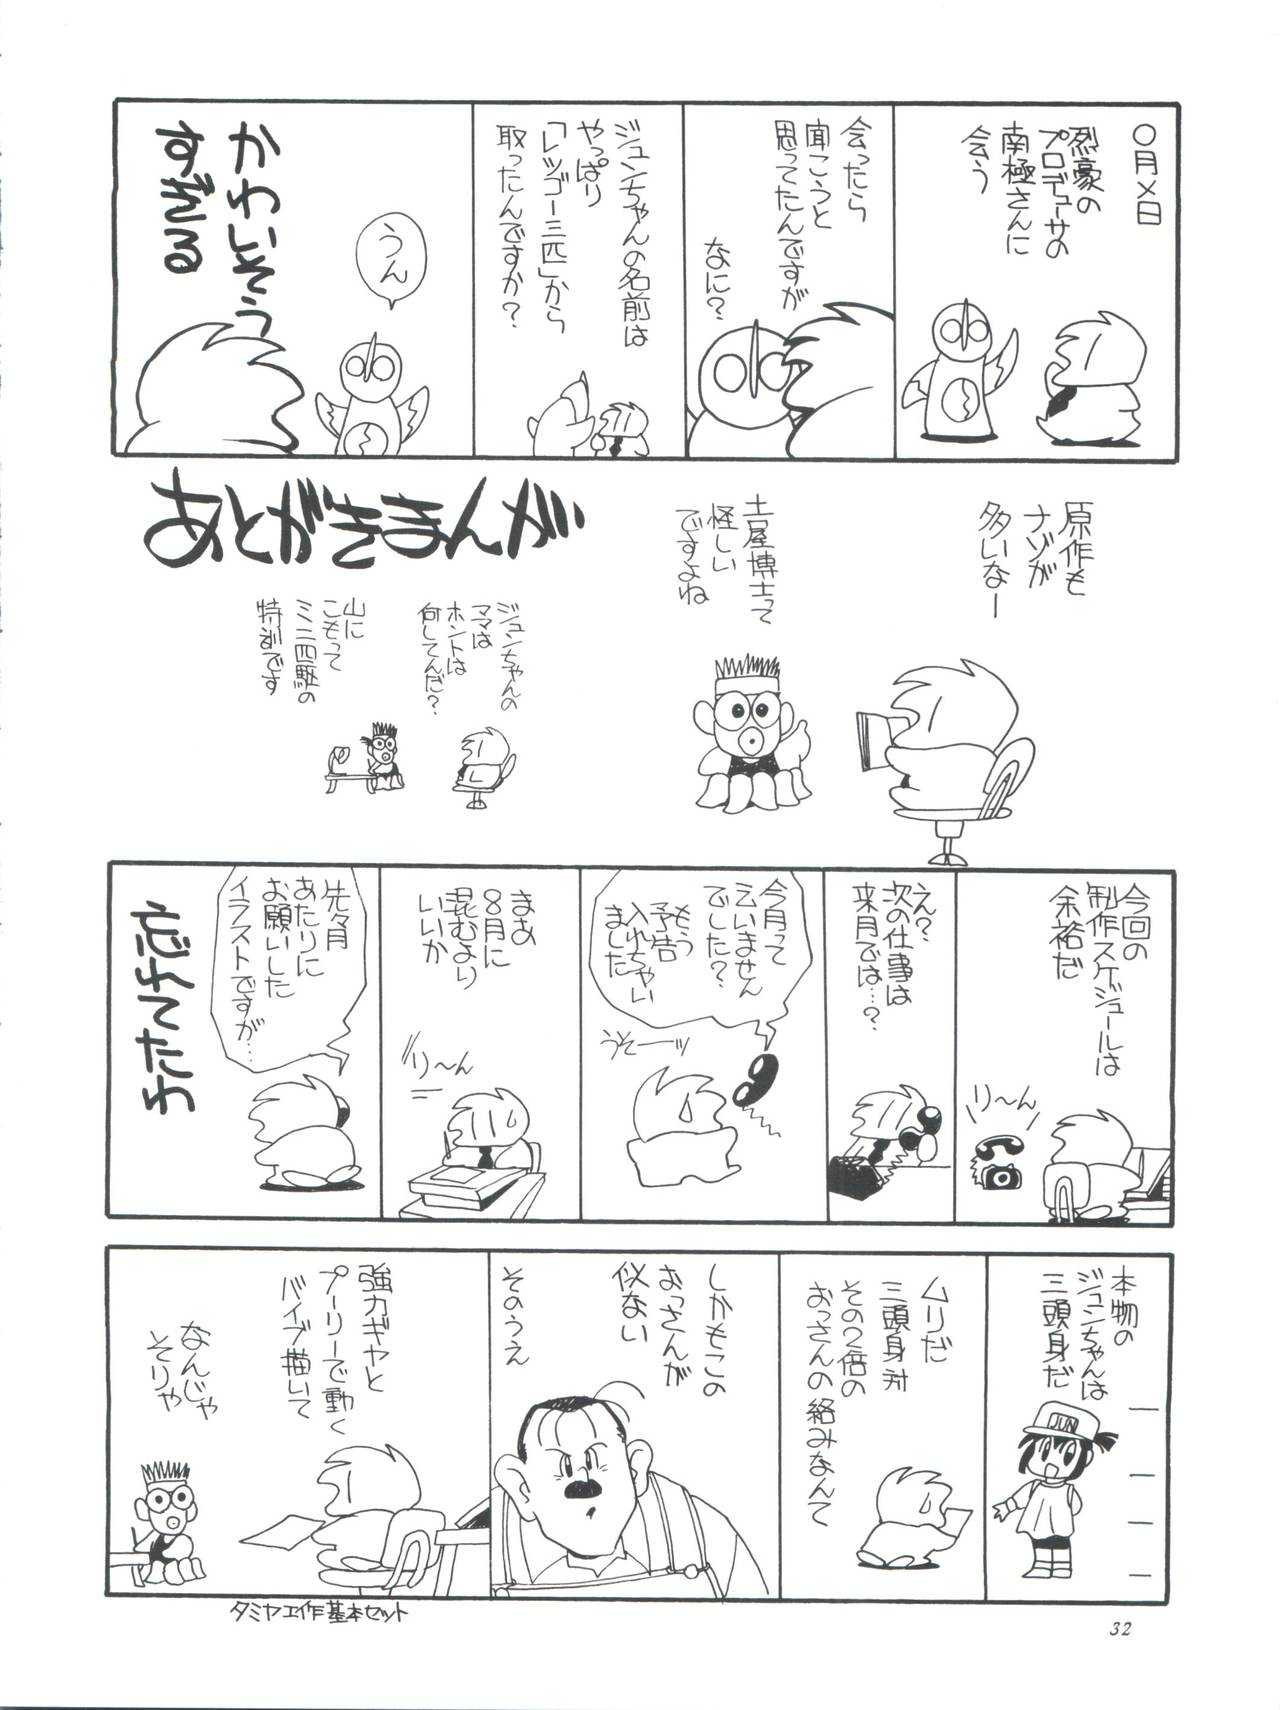 〇月×日
烈豪の
プロデューサの
南極さんに
会う
会ったら
聞こうと
思ってたんですが
なに?
ジュンちゃんの名前は
やっぱり
「レツゴー三匹」から
取ったんですか?
うん
かわいそう
すぎる
あとがきまんが
原作も
ナゾが
多いなー
土屋博士って
怪しい
ですよね
ジュンちゃんの
ママは
ホントは
何してんだ?
山に
こもって
ミニ四駆の
特訓です
今回の
制作スケジュールは
余裕だ
り〜ん
え?
次の仕事は
来月では…?
今月って
云いません
でした?
もう
予告
入れちゃい
ました
うそーッ
まあ
8月に
混むより
いいか
り〜ん
先々月
あたりに
お願いした
イラストですが…
忘れてたわ
本物の
ジュンちゃんは
三頭身だ
JUN
ムリだ
三頭身対
その2倍の
おっさんの絡みなんて
しかもこの
おっさんが
似ない
そのうえ
強力ギヤと
プーリーで動く
バイブ描いて
なんじゃ
そりゃ
タミヤ工作基本セット
32